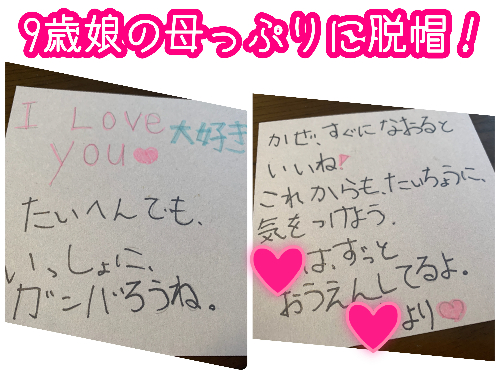 9歳娘の母っぷりに脱帽！
I Love
大好き
you
たいへんでも、
いっしょに、
ガンバろうね。
かぜ、すぐになおると
いいね!
これからも、たいちょうに、
気をつけよう.
は、ずっと
おうえんしてるよ。
より